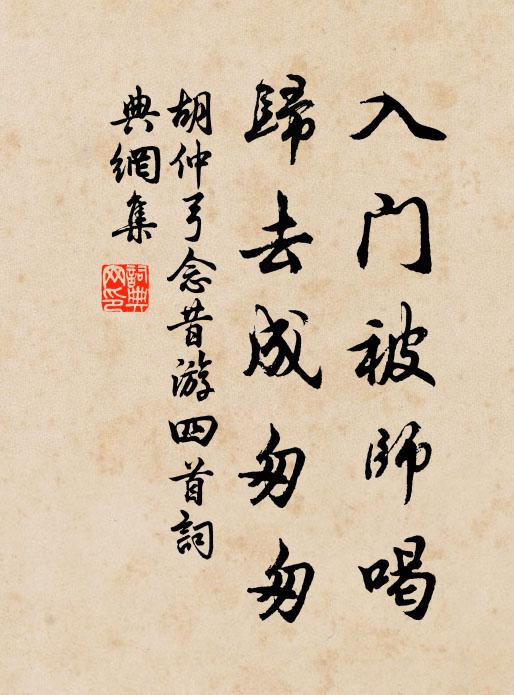 入门被師喝
歸去成匆匆
胡仲弓念昔游四首詞
典網集
詞典
网印